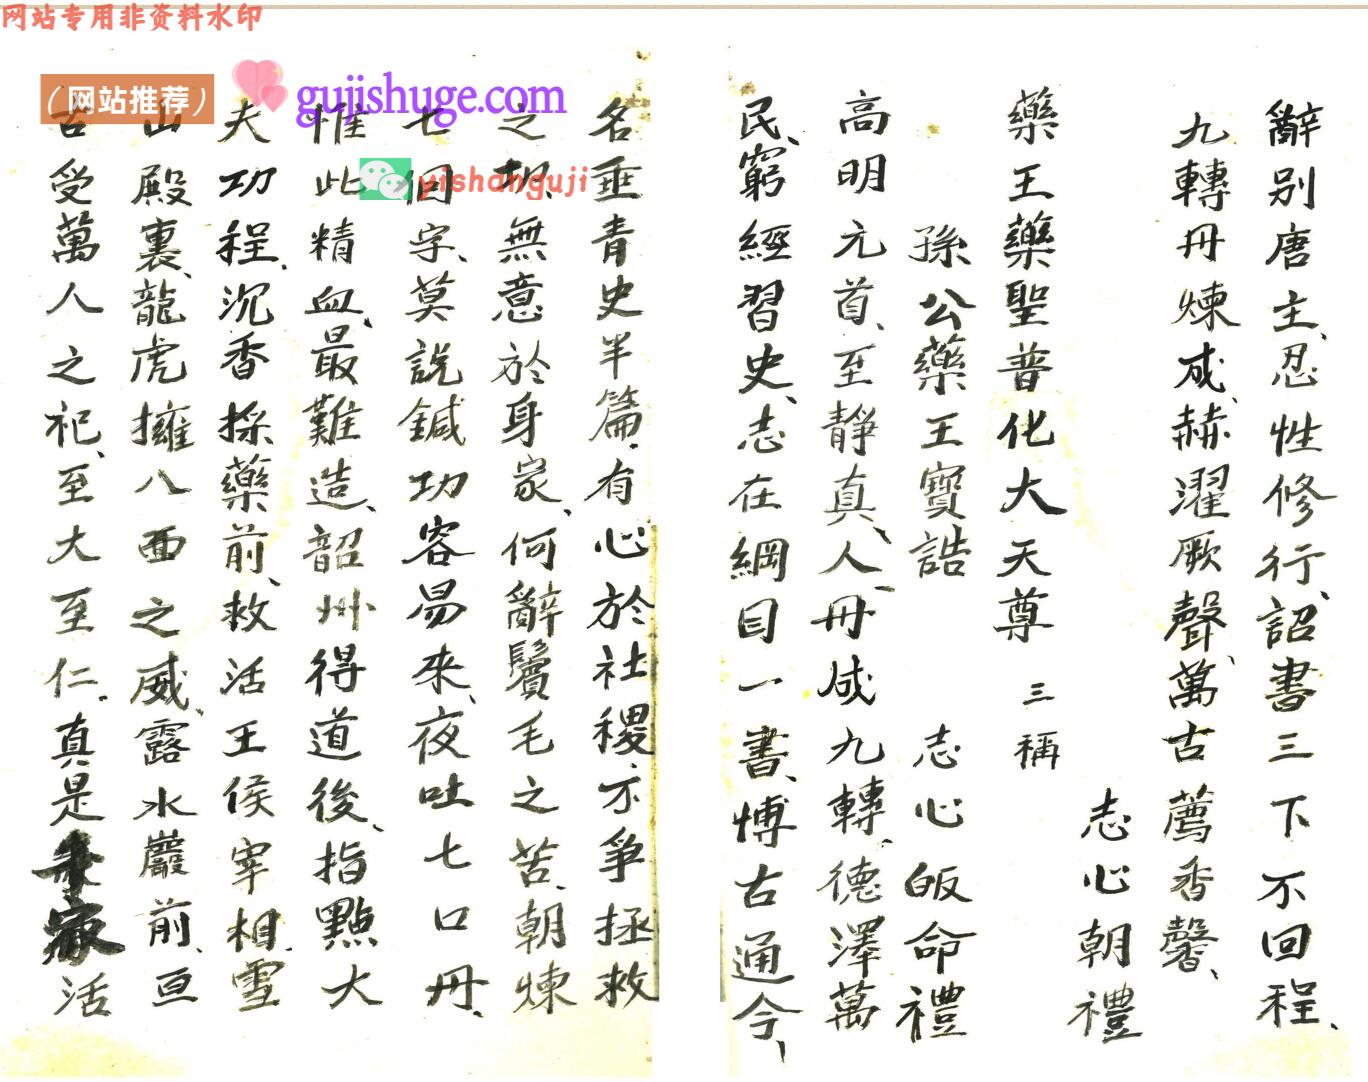 网站专用非资料水印
（网站推荐）
gujishuge.com
yishanguji
辭別唐主、忍性修行、詔書三下不回程、
九轉丹煉成、赫濯厥聲、萬古薦香馨、
志心朝禮
藥王藥聖普化大天尊 三稱
孫公藥王寶誥 志心皈命禮
高明元首、至靜真人、丹成九轉、德澤萬
民、窮經習史、志在綱目一書、博古通今、
名垂青史半篇、有心於社稷、不爭拯救
之功、無意於身家、何辭鬢毛之苦、朝煉
七個字、莫說鍼功容易來、夜吐七口丹、
惟此精血、最難造、韶州得道後、指點大
夫功程、沉香採藥前、救活王侯宰相、雪
山殿裏、龍虎擁八面之威、露水巖前、亘
古受萬人之祀、至大至仁、真是活